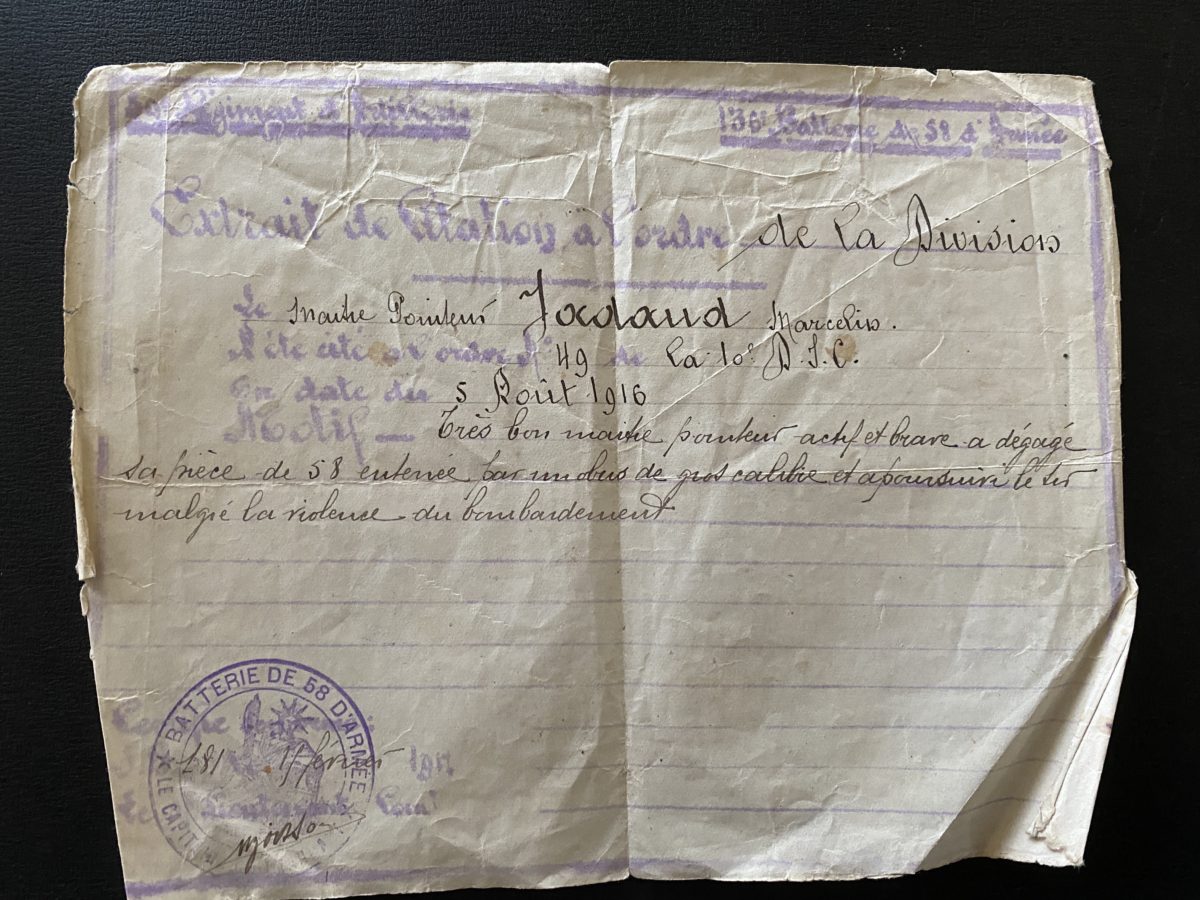 Régiment d'Artillerie
136e Batterie de 58 d'Armée
Extrait de Citation à l'ordre de la Division
Le Maitre Pointeur Jadaud Marcelin.
A été cité à l'ordre No 49 de la 10e D.I.C.
En date du 5 Août 1916
Motif — Très bon maitre pointeur actif et brave a dégagé
sa pièce de 58 enterrée par un obus de gros calibre et a poursuivi le tir
malgré la violence du bombardement
BATTERIE DE 58 D'ARMÉE
181 février 191
Lieutenant Com
LE CAPIT